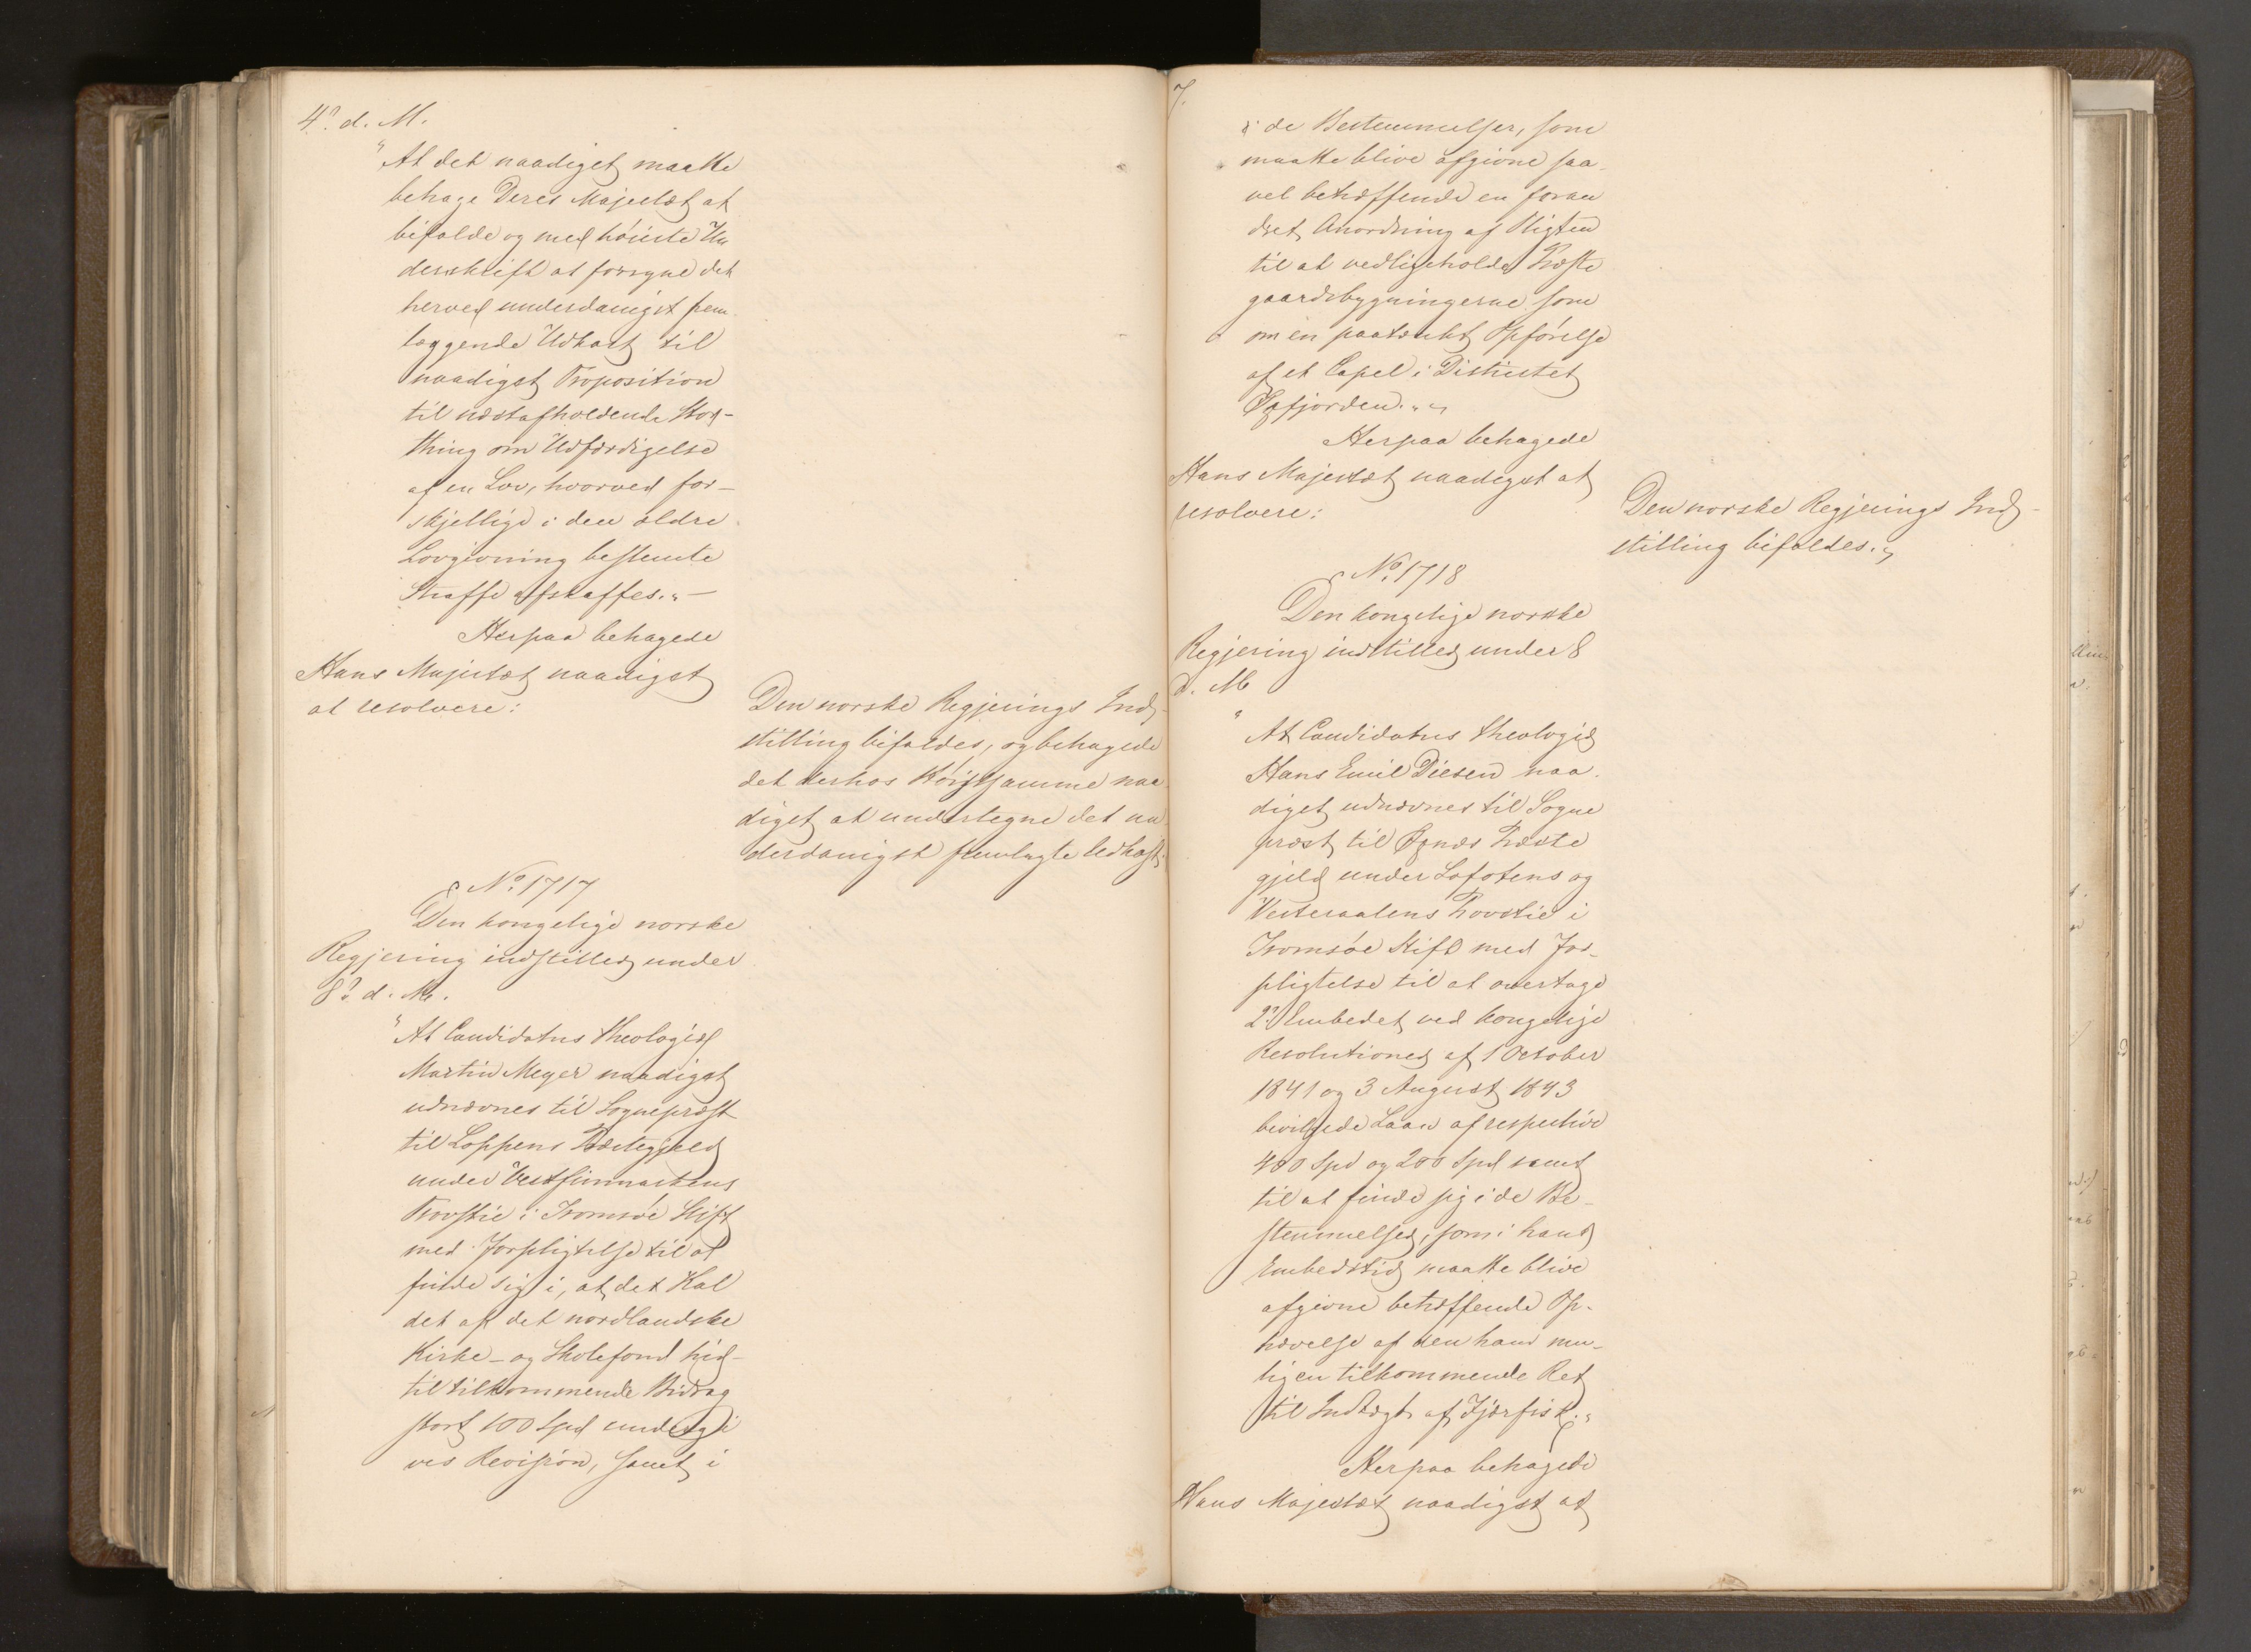 4? d. M.
"At det naadigst maatte
behage Deres Majestæt at
bifalde og med høieste Un
derskrift at forsyne det
herved underdanigst frem
læggende Udkast til
naadigst Proposition
til næstafholdende Stor-
thing om Udfærdigelse
af en Lov, hvorved for-
skjellige i den ældre
Lovgivning bestemte
Straffe afskaffes." -
Herpaa behagede
Hans Majestæt naadigst
at resolvere:
Den norske Regjerings Ind-
stilling bifaldes, og behagede
det derhos Høistsamme naa
digst at undertegne det un
derdanigst fremlagte Udkast.
No. 1717
Den kongelige norske
Regjering indstilled under
8? d. M.
"At Candidatus theologiæ
Martin Meyer naadigst
udnævnes til Sognepræst
til Loppens Præstegjeld
under Vestfinmarkens
Provstie i Tromsøe Stift
med Forpligtelse til at
finde sig i, at det Kal
det af det nordlandske
Kirke- og Skolefond hid-
til tilkommende Bidrag
stort 100 Spd undergi
ves Revision, samt i
7.
i de Bestemmelser, som
maatte blive afgivne saa-
vel betræffende en foran
dret Anordning af Pligten
til at vedligeholde Præste
gaardsbygningerne som
om en paatænkt Opførelse
af et Capel i Districtet
Øxfjorden."
Herpaa behagede
Hans Majestæt naadigst at
resolvere:
Den norske Regjerings Ind-
stilling bifaldes.
No. 1718
Den kongelige norske
Regjering indstilled under 8
d. M
"At Candidatus theologiæ
Hans Emil Diesen naa-
digst udnævnes til Sogne
præst til Øxnæs Præste
gjeld under Lofotens og
Vesteraalens Provstie i
Tromsøe Stift med For-
pligtelse til at overtage
2? Embedet ved kongelige
Resolutioner af 1 October
1841 og 3 August 1843
bevilgede Laan af respective
400 Spd og 200 Spd samt
til at finde sig i de Be-
stemmelser, som i hans
Embedstid maatte blive
afgivne betræffende Op-
hævelse af den ham mu-
ligen tilkommende Ret
til Indtægt af Fjærfisk."
Herpaa behagede
Hans Majestæt naadigst at